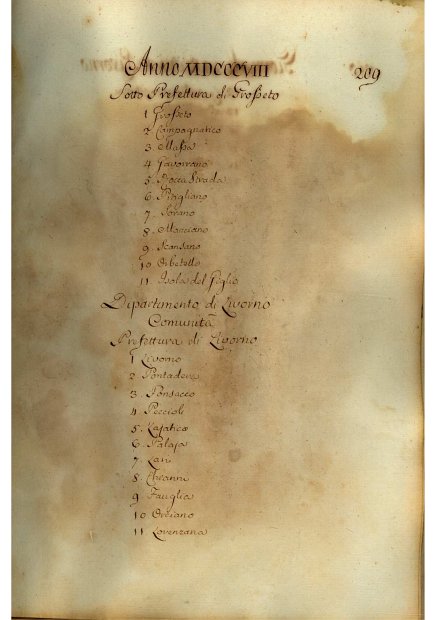 Anno MDCCCVIII 209
Sotto Prefettura di Grosseto
1 Grosseto
2 Campagnatico
3 Massa
4 Gavorrano
5 Rocca Strada
6 Pitigliano
7 Sorano
8 Manciano
9 Scansano
10 Orbetello
11 Isola del Giglio
Dipartimento di Livorno
Comunità
Prefettura di Livorno
1 Livorno
2 Pontadera
3 Ponsacco
4 Peccioli
5 Lajatico
6 Palaja
7 Lari
8 Chianni
9 Fauglia
10 Orciano
11 Lorenzana